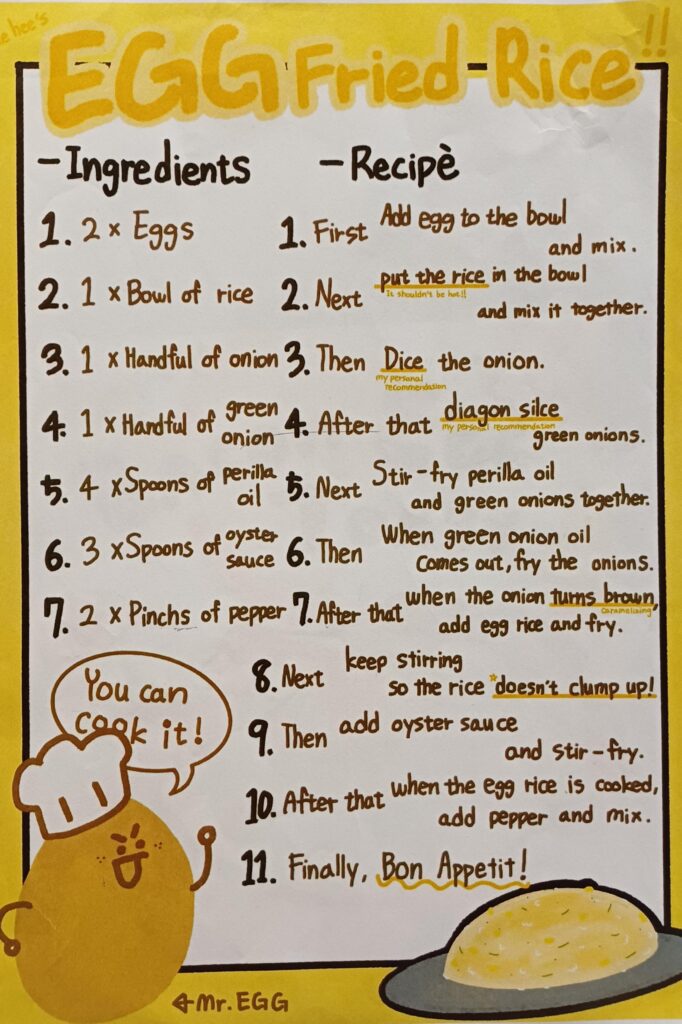 hee's
EGG Fried-Rice!!
-Ingredients
1. 2 x Eggs
2. 1 x Bowl of rice
3. 1 x Handful of onion
4. 1 x Handful of green
onion
5. 4 x Spoons of perilla
oil
6. 3 x Spoons of oyster
sauce
7. 2 x Pinchs of pepper
-Recipè
1. First Add egg to the bowl
and mix.
2. Next put the rice in the bowl
It shouldn't be hot!!
and mix it together.
3. Then Dice the onion.
my personal
recommendation
4. After that diagon silce
my personal recommendation
green onions.
5. Next Stir-fry perilla oil
and green onions together.
6. Then When green onion oil
comes out, fry the onions.
7. After that when the onion turns brown,
caramelizing
add egg rice and fry.
8. Next keep stirring
so the rice *doesn't clump up!
9. Then add oyster sauce
and stir-fry.
10. After that when the egg rice is cooked,
add pepper and mix.
11. Finally, Bon Appetit!
You can
cook it!
←Mr.EGG